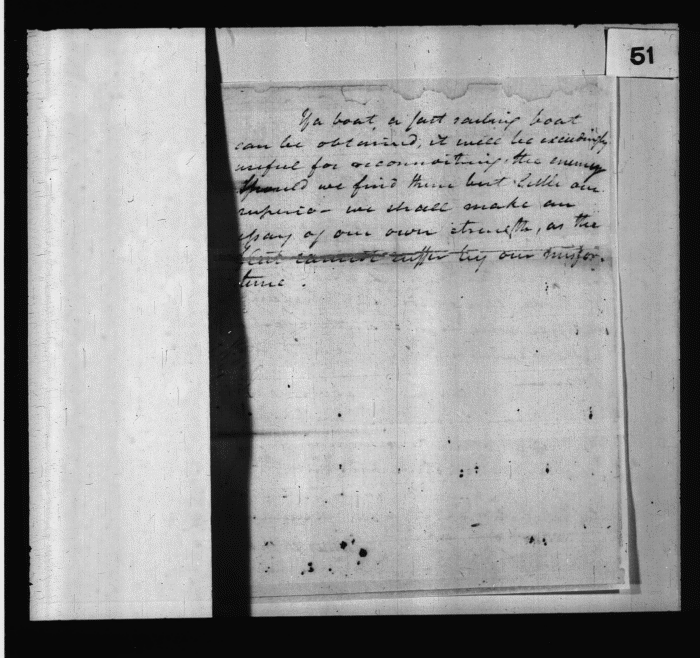 51
If a boat, a fast sailing boat
can be obtained, it will be exceedingly
useful for reconnoitring the enemy
Should we find them but little our
superior we shall make an
essay of our own strength, as the
cannot suffer by our misfor-
tune.